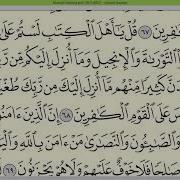 فِرِينَ ٦٧ قُلْ يَٰٓأَهْلَ ٱلْكِتَٰبِ لَسْتُمْ عَلَىٰ
ٱلتَّوْرَىٰةَ وَٱلْإِنجِيلَ وَمَآ أُنزِلَ إِلَيْكُم مِّن رَّ
دَنَّ كَثِيرًا مِّنْهُم مَّآ أُنزِلَ إِلَيْكَ مِن رَّبِّكَ طُغْيَٰ
سَ عَلَى ٱلْقَوْمِ ٱلْكَٰفِرِينَ ٦٨ إِنَّ ٱلَّذِينَ ءَامَنُ
وَٱلصَّٰبِـُٔونَ وَٱلنَّصَٰرَىٰ مَنْ ءَامَنَ بِٱللَّهِ وَ
صَٰلِحًا فَلَا خَوْفٌ عَلَيْهِمْ وَلَا هُمْ يَحْزَنُونَ ٦٩